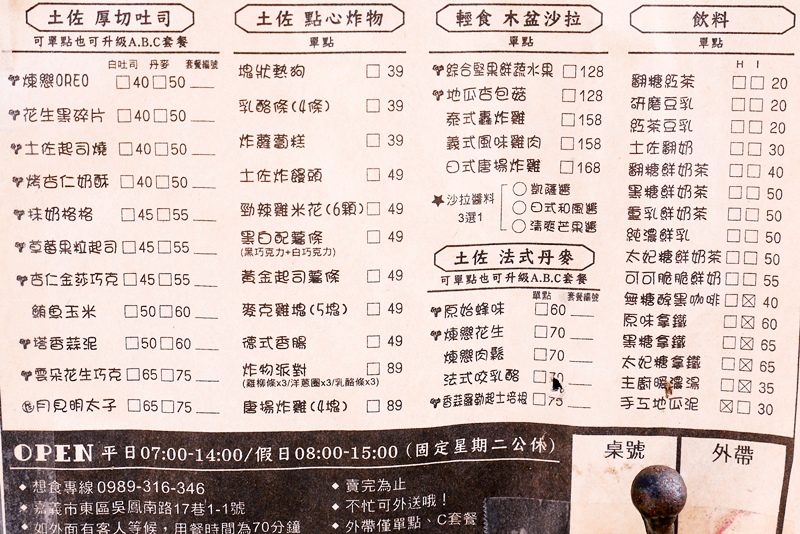 土佐 厚切吐司
可單點也可升級A.B.C套餐
白吐司 丹麥 套餐編號
煉戀OREO □40□50
花生黑碎片 □40□50
土佐起司燒 □40□50
烤杏仁奶酥 □40□50
抹奶格格 □45□55
草莓果粒起司□45□55
杏仁金莎巧克□45□55
鮪魚玉米 □50□60
塔香蒜泥 □50□60
雲朵花生巧克□65□75
月見明太子 □65□75
土佐 點心炸物
單點
塊狀熱狗 □ 39
乳酪條(4條) □ 39
炸蘿蔔糕 □ 39
土佐炸饅頭 □ 49
勁辣雞米花(6顆)□ 49
黑白配薯條 □ 49
(黑巧克力+白巧克力)
黃金起司薯條 □ 49
麥克雞塊(5塊) □ 49
德式香腸 □ 49
炸物派對 □ 89
(雞柳條x3/洋蔥圈x3/乳酪條x3)
唐揚炸雞(4塊) □ 89
輕食 木盆沙拉
單點
綜合堅果鮮蔬水果 □128
地瓜杏包菇 □128
泰式轟炸雞 □158
義式風味雞肉 □158
日式唐揚炸雞 □168
★沙拉醬料
3選1
○凱薩醬
○日式和風醬
○清爽芒果醬
土佐 法式丹麥
可單點也可升級A.B.C套餐
單點 套餐編號
原始蜂味 □60
煉戀花生 □70
煉戀肉鬆 □70
法式咬乳酪 □70
香蒜羅勒起士培根 □75
飲料
單點
H I
翻糖紅茶 □□ 20
研磨豆乳 □□ 20
紅茶豆乳 □□ 20
土佐翻奶 □□ 30
翻糖鮮奶茶 □□ 40
黑糖鮮奶茶 □□ 50
重乳鮮奶茶 □□ 50
純濃鮮乳 □□ 50
太妃糖鮮奶茶□□ 50
可可脆脆鮮奶□□ 55
無糖醇黑咖啡□☒ 40
原味拿鐵 □☒ 60
黑糖拿鐵 □☒ 65
太妃糖拿鐵 □☒ 65
主廚暖濃湯 □☒ 35
手工地瓜泥 ☒□ 30
OPEN 平日07:00-14:00/假日08:00-15:00 (固定星期二公休)
◆ 想食專線 0989-316-346
◆ 嘉義市東區吳鳳南路17巷1-1號
◆ 如外面有客人等候，用餐時間為70分鐘
◆ 賣完為止
◆ 不忙可外送哦！
◆ 外帶僅單點、C套餐
桌號
外帶